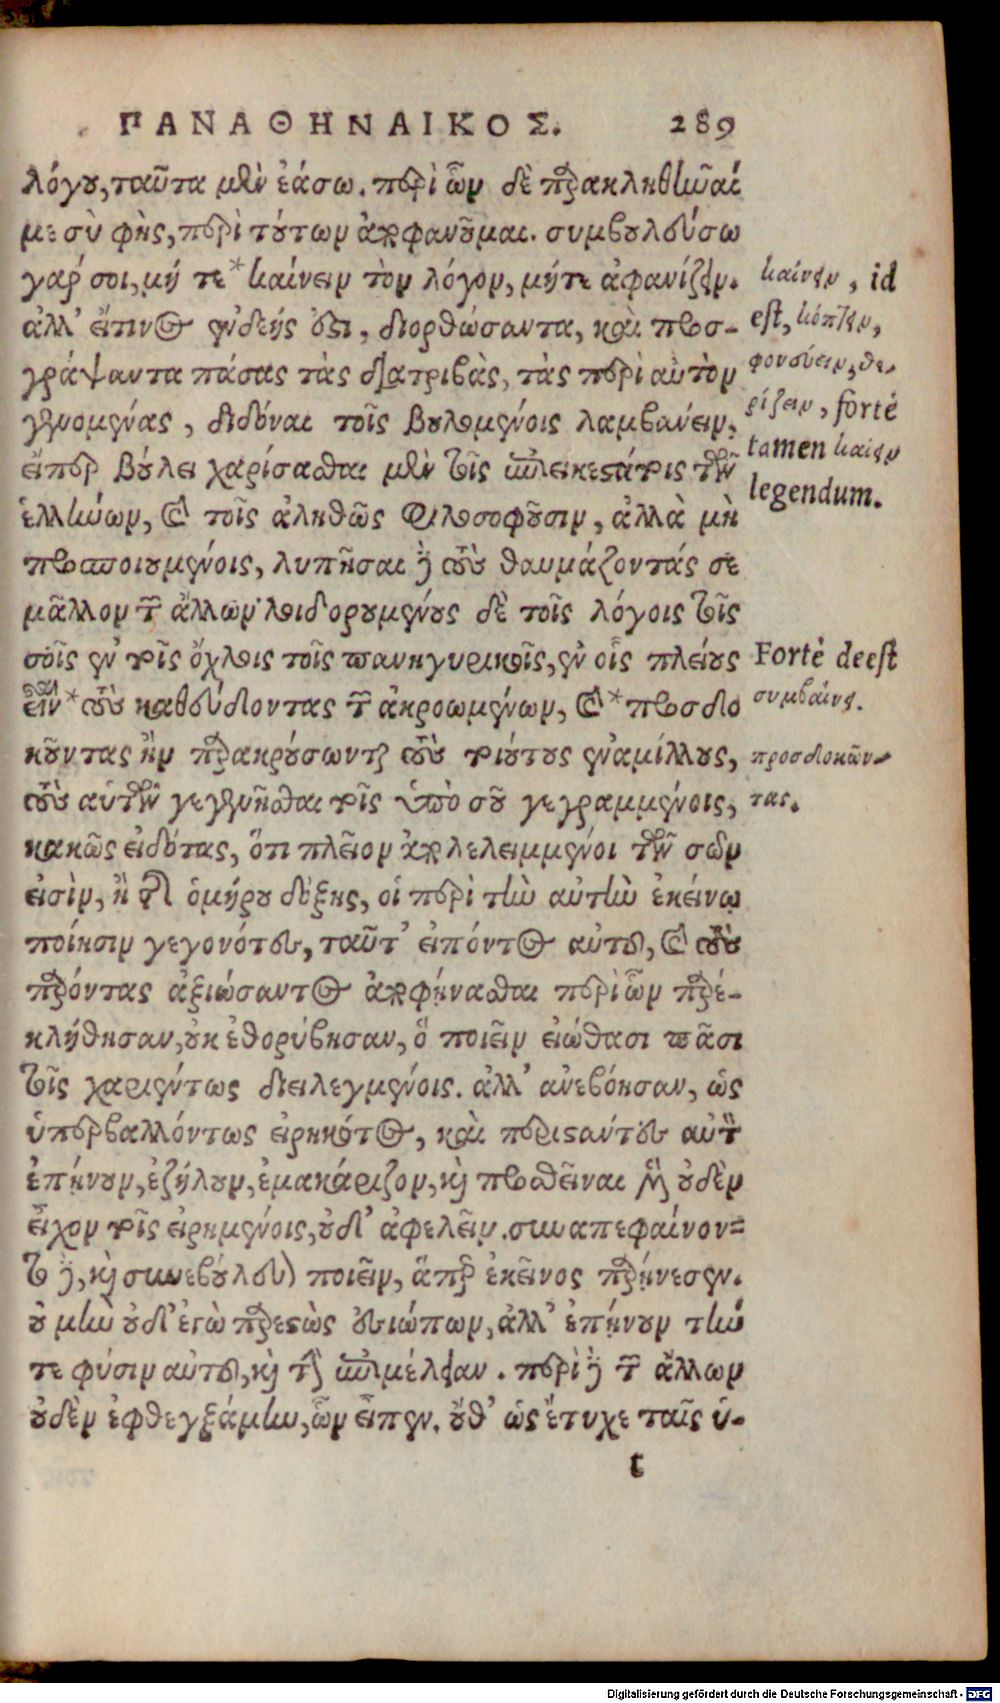 ΠΑΝΑΘΗΝΑΙΚΟΣ. 289
λόγου, ταῦτα μὲν ἐάσω. περὶ ὧν δὲ παρακληθῆναί
με σὺ φῂς, περὶ τούτων ἀποφανοῦμαι. συμβουλεύσω
γάρ σοι, μή τε * καίνειν τὸν λόγον, μήτε ἀφανίζειν.
ἀλλ' εἴ τινος ἐνδεής ἐστι, διορθώσαντα, καὶ προσ-
γράψαντα πάσας τὰς διατριβὰς, τὰς περὶ αὐτὸν
γενομένας, διδόναι τοῖς βουλομένοις λαμβάνειν,
εἴπερ βούλει χαρίσασθαι μὲν τοῖς ἐπιεικεστάτοις τῶν
ἑλλήνων, καὶ τοῖς ἀληθῶς φιλοσοφοῦσιν, ἀλλὰ μὴ
προσποιουμένοις, λυπῆσαι δὲ τοὺς θαυμάζοντάς σε
μᾶλλον τῶν ἄλλων· λοιδορουμένους δὲ τοῖς λόγοις τοῖς
σοῖς ἐν τοῖς ὄχλοις τοῖς πανηγυρικοῖς, ἐν οἷς πλείους
εἶναι * τοὺς καθεύδοντας τῶν ἀκροωμένων, καὶ * προσδο
κοῦντας ἢν παρακρούσωνται τοὺς τοιούτους ἐναμίλλους,
τοὺς αὑτῶν γεγενῆσθαι τοῖς ὑπὸ σοῦ γεγραμμένοις,
κακῶς εἰδότας, ὅτι πλεῖον ἀπολελειμμένοι τῶν σῶν
εἰσὶν, ἢ τῆς ὁμήρου δόξης, οἱ περὶ τὴν αὐτὴν ἐκείνῳ
ποίησιν γεγονότες, ταῦτ' εἰπόντος αὐτοῦ, καὶ τοὺς
παρόντας ἀξιώσαντος ἀποφήνασθαι περὶ ὧν παρε-
κλήθησαν, οὐκ ἐθορύβησαν, ὃ ποιεῖν εἰώθασι πᾶσι
τοῖς χαριέντως διειλεγμένοις. ἀλλ' ἀνεβόησαν, ὡς
ὑπερβαλλόντως εἰρηκότος, καὶ περιστάντες αὐτὸν
ἐπῄνουν, ἐζήλουν, ἐμακάριζον, καὶ προσθεῖναι μὲν οὐδὲν
εἶχον τοῖς εἰρημένοις, οὐδ' ἀφελεῖν. συναπεφαίνον-
το δὲ, καὶ συνεβούλευον ποιεῖν, ἅπερ ἐκεῖνος παρῄνεσεν.
οὐ μὴν οὐδ' ἐγὼ παρεστὼς ἐσιώπων, ἀλλ' ἐπῄνουν τήν
τε φύσιν αὐτοῦ, καὶ τὴν ἐπιμέλειαν. περὶ δὲ τῶν ἄλλων
οὐδὲν ἐφθεγξάμην, ὧν εἶπεν. οὔθ' ὡς ἔτυχε ταῖς ὑ-
t
καίνειν, id
est, κόπτειν,
φονεύειν, θε-
ρίζειν, fortè
tamen καίειν
legendum.
Fortè deest
συμβαίνει.
προσδοκῶν-
τας.
Digitalisierung gefördert durch die Deutsche Forschungsgemeinschaft - DFG